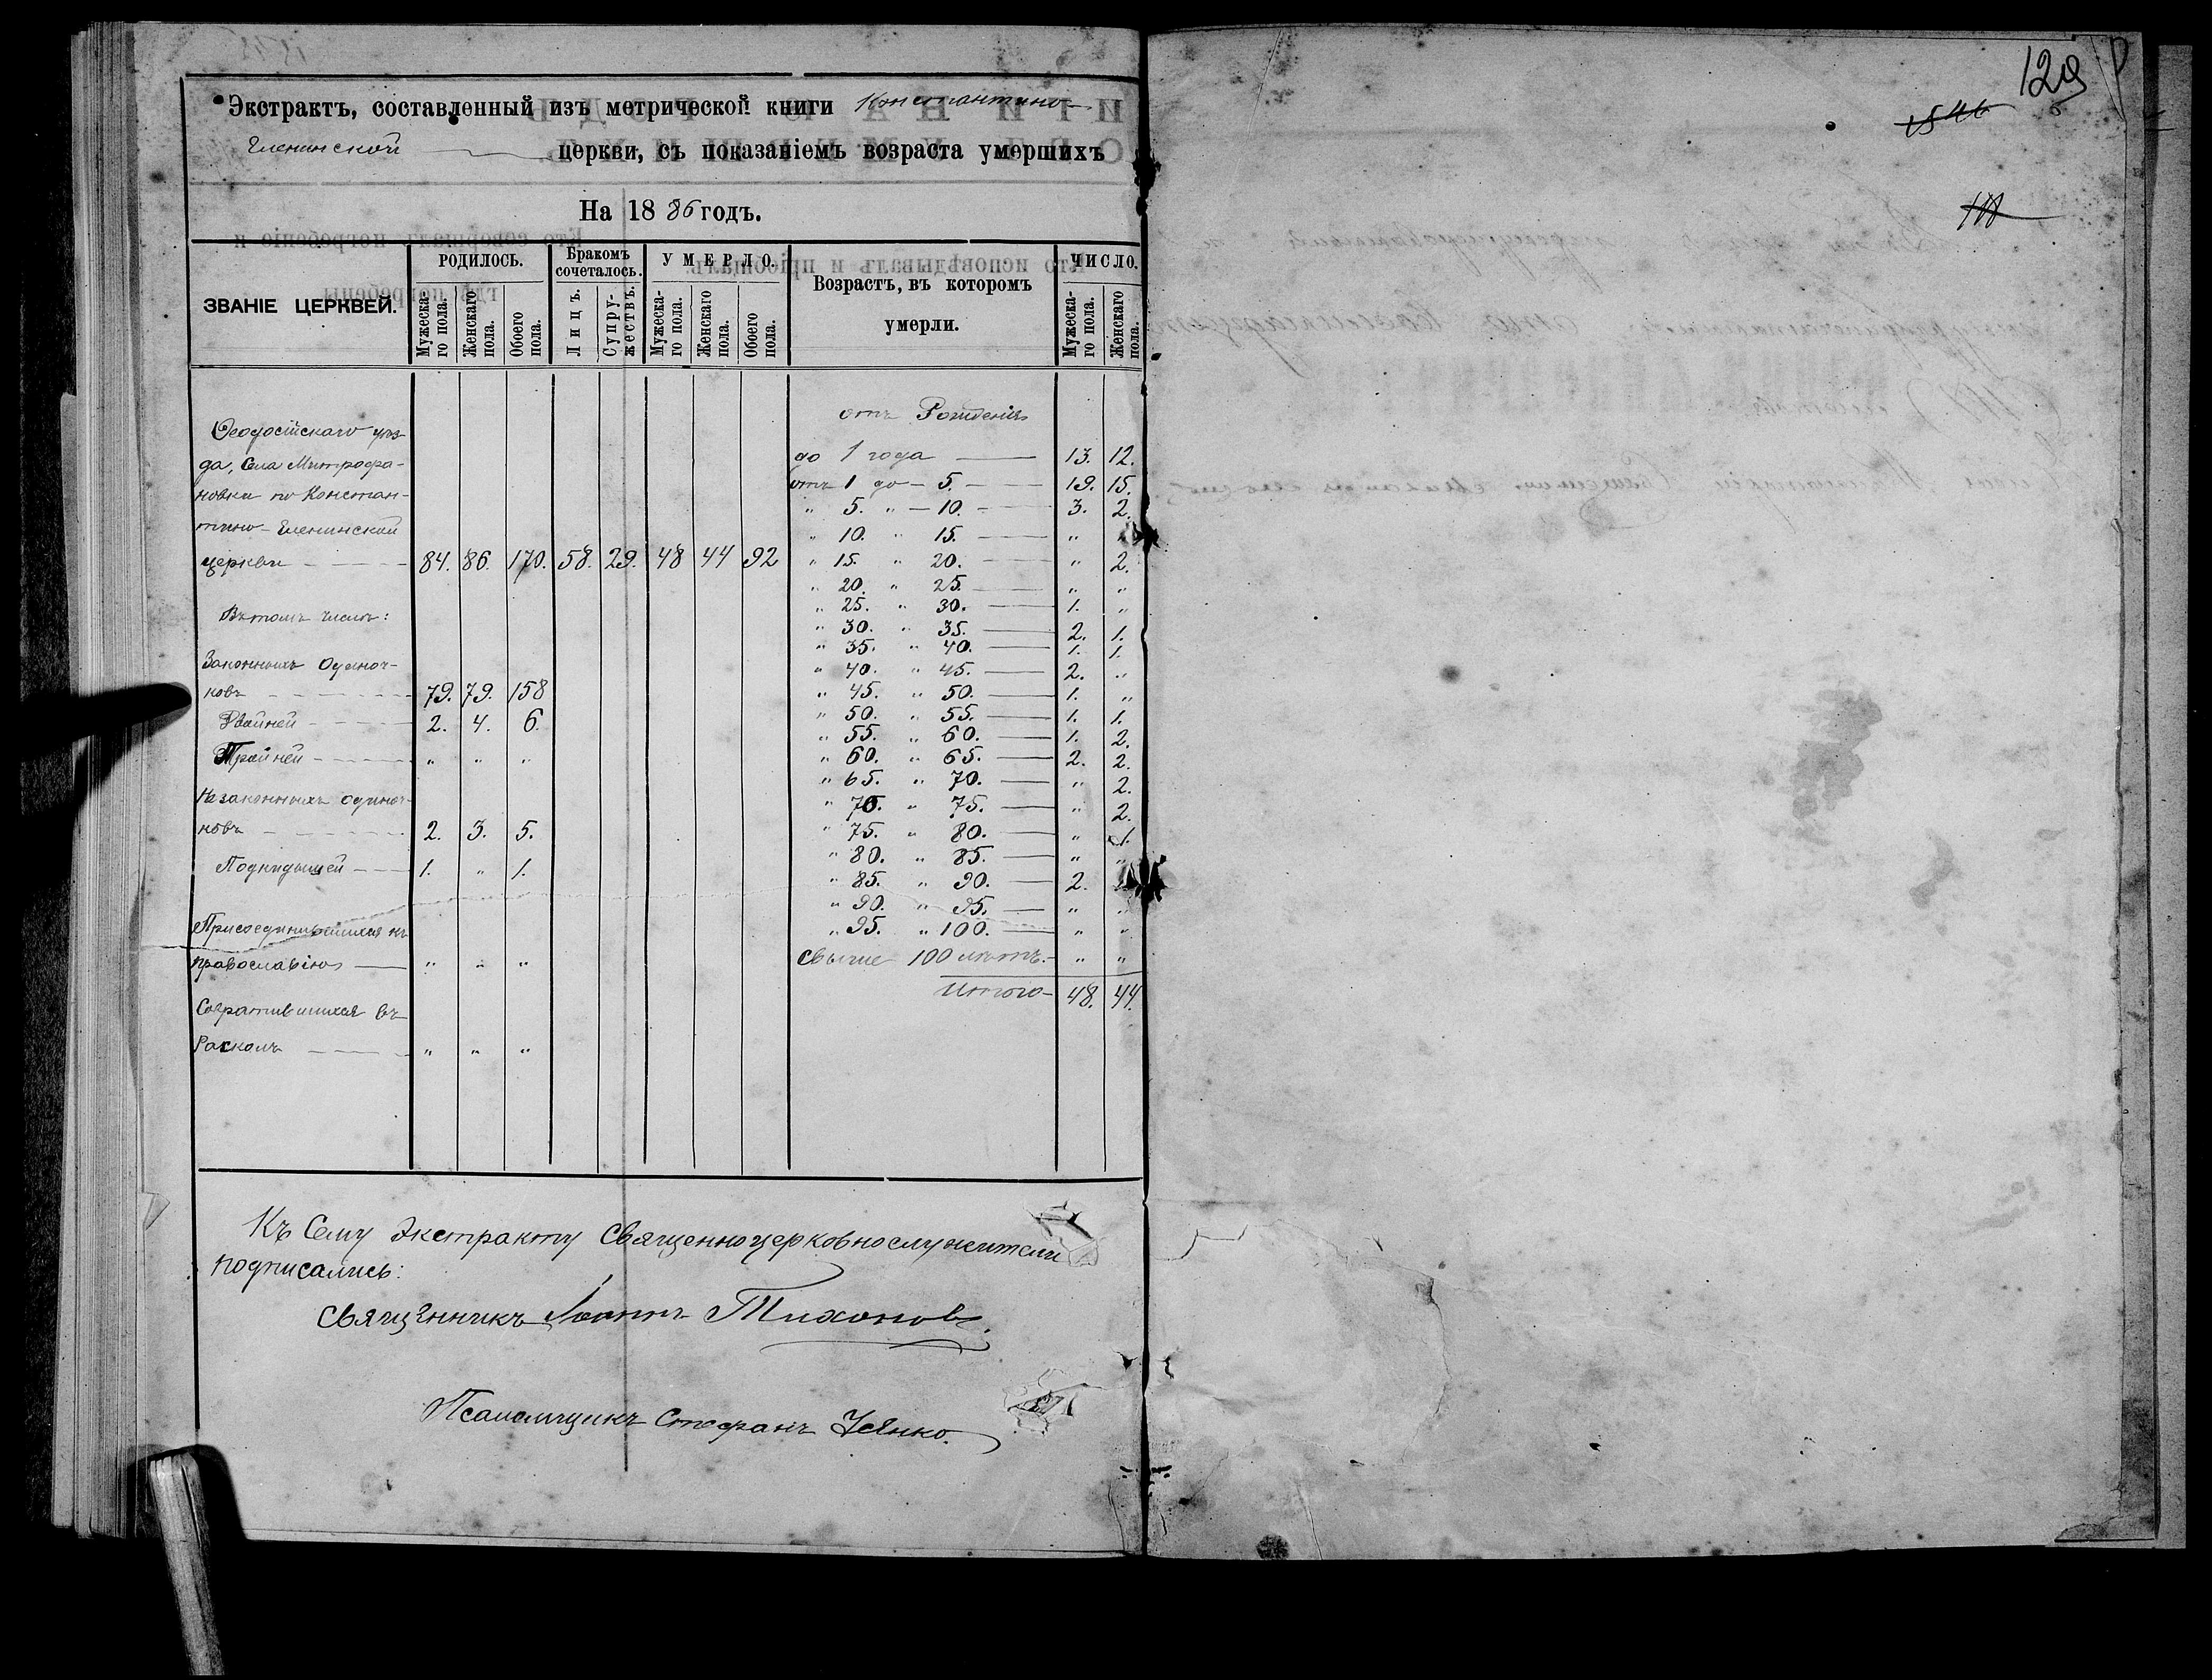 Экстрактъ, составленный изъ метрической книги Константино-
Еленинской церкви, съ показаніемъ возраста умершихъ
На 1886 годъ.
ЗВАНІЕ ЦЕРКВЕЙ.
РОДИЛОСЬ.
Мужеска-
го пола.
Женскаго
пола.
Обоего
пола.
Бракомъ
сочеталось.
Лицъ.
Супру-
жествъ.
УМЕРЛО.
Мужеска-
го пола.
Женскаго
пола.
Обоего
пола.
Возрастъ, въ которомъ
умерли.
ЧИСЛО.
Мужеска-
го пола.
Женскаго
пола.
Ѳеодосійскаго уѣз-
да, Села Митрофа-
новки по Констан-
тино-Еленинской
церкви 84. 86. 170. 58. 29. 48 44 92
Въ томъ числѣ:
Законныхъ одиноч-
ковъ 79. 79. 158
Двойней 2. 4. 6.
Тройней " " "
Незаконныхъ одиноч-
ковъ 2. 3. 5.
Подкидышей 1. " 1.
Присоединившихся къ
православію " " "
Совратившихся въ
Расколъ " " "
отъ Рожденія
до 1 года 13. 12.
отъ 1 до 5. 19. 15.
" 5. " 10. 3. 2.
" 10. " 15. "
" 15. " 20. " 2.
" 20. " 25. " "
" 25. " 30. 1. "
" 30. " 35. 2. 1.
" 35. " 40. 1. 1.
" 40. " 45. 2. "
" 45. " 50. 1. "
" 50. " 55. 1. 1.
" 55. " 60. 1. 2.
" 60. " 65. 2. 2.
" 65. " 70. " 2.
" 70. " 75. " 2.
" 75. " 80. " 1.
" 80. " 85. " "
" 85. " 90. 2.
" 90. " 95. " "
" 95. " 100. " "
свыше 100 лѣтъ. " "
Итого 48. 44.
Къ сему экстракту Священноцерковнослужители
подписались:
Священникъ Іоаннъ Тихоновъ.
Псаломщикъ Стефанъ
129